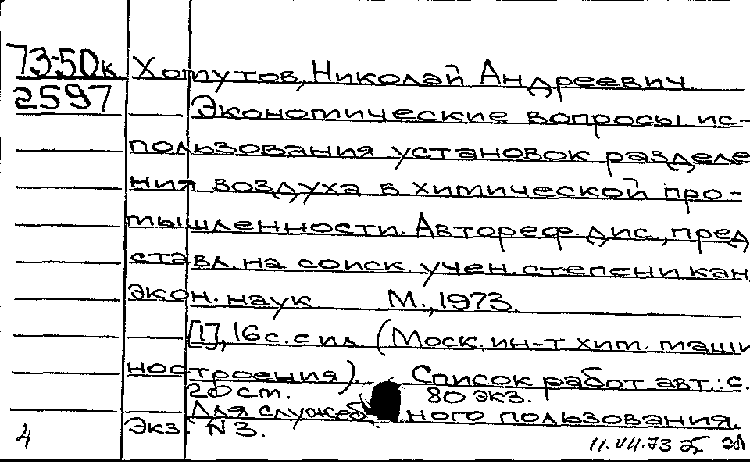 73-50к Хомутов, Николай Андреевич.
2597 Экономические вопросы ис-
пользования установок разделе
ния воздуха в химической про-
мышленности. Автореф. дис., пред
ставл. на соиск. учен. степени кан
экон. наук М., 1973.
[1], 16 с. с ил (Моск. ин-т хим. маши
ностроения) Список работ авт.: с.
20 см. 80 экз.
Для служебного пользования.
Экз. N3.
4 11.VII.73